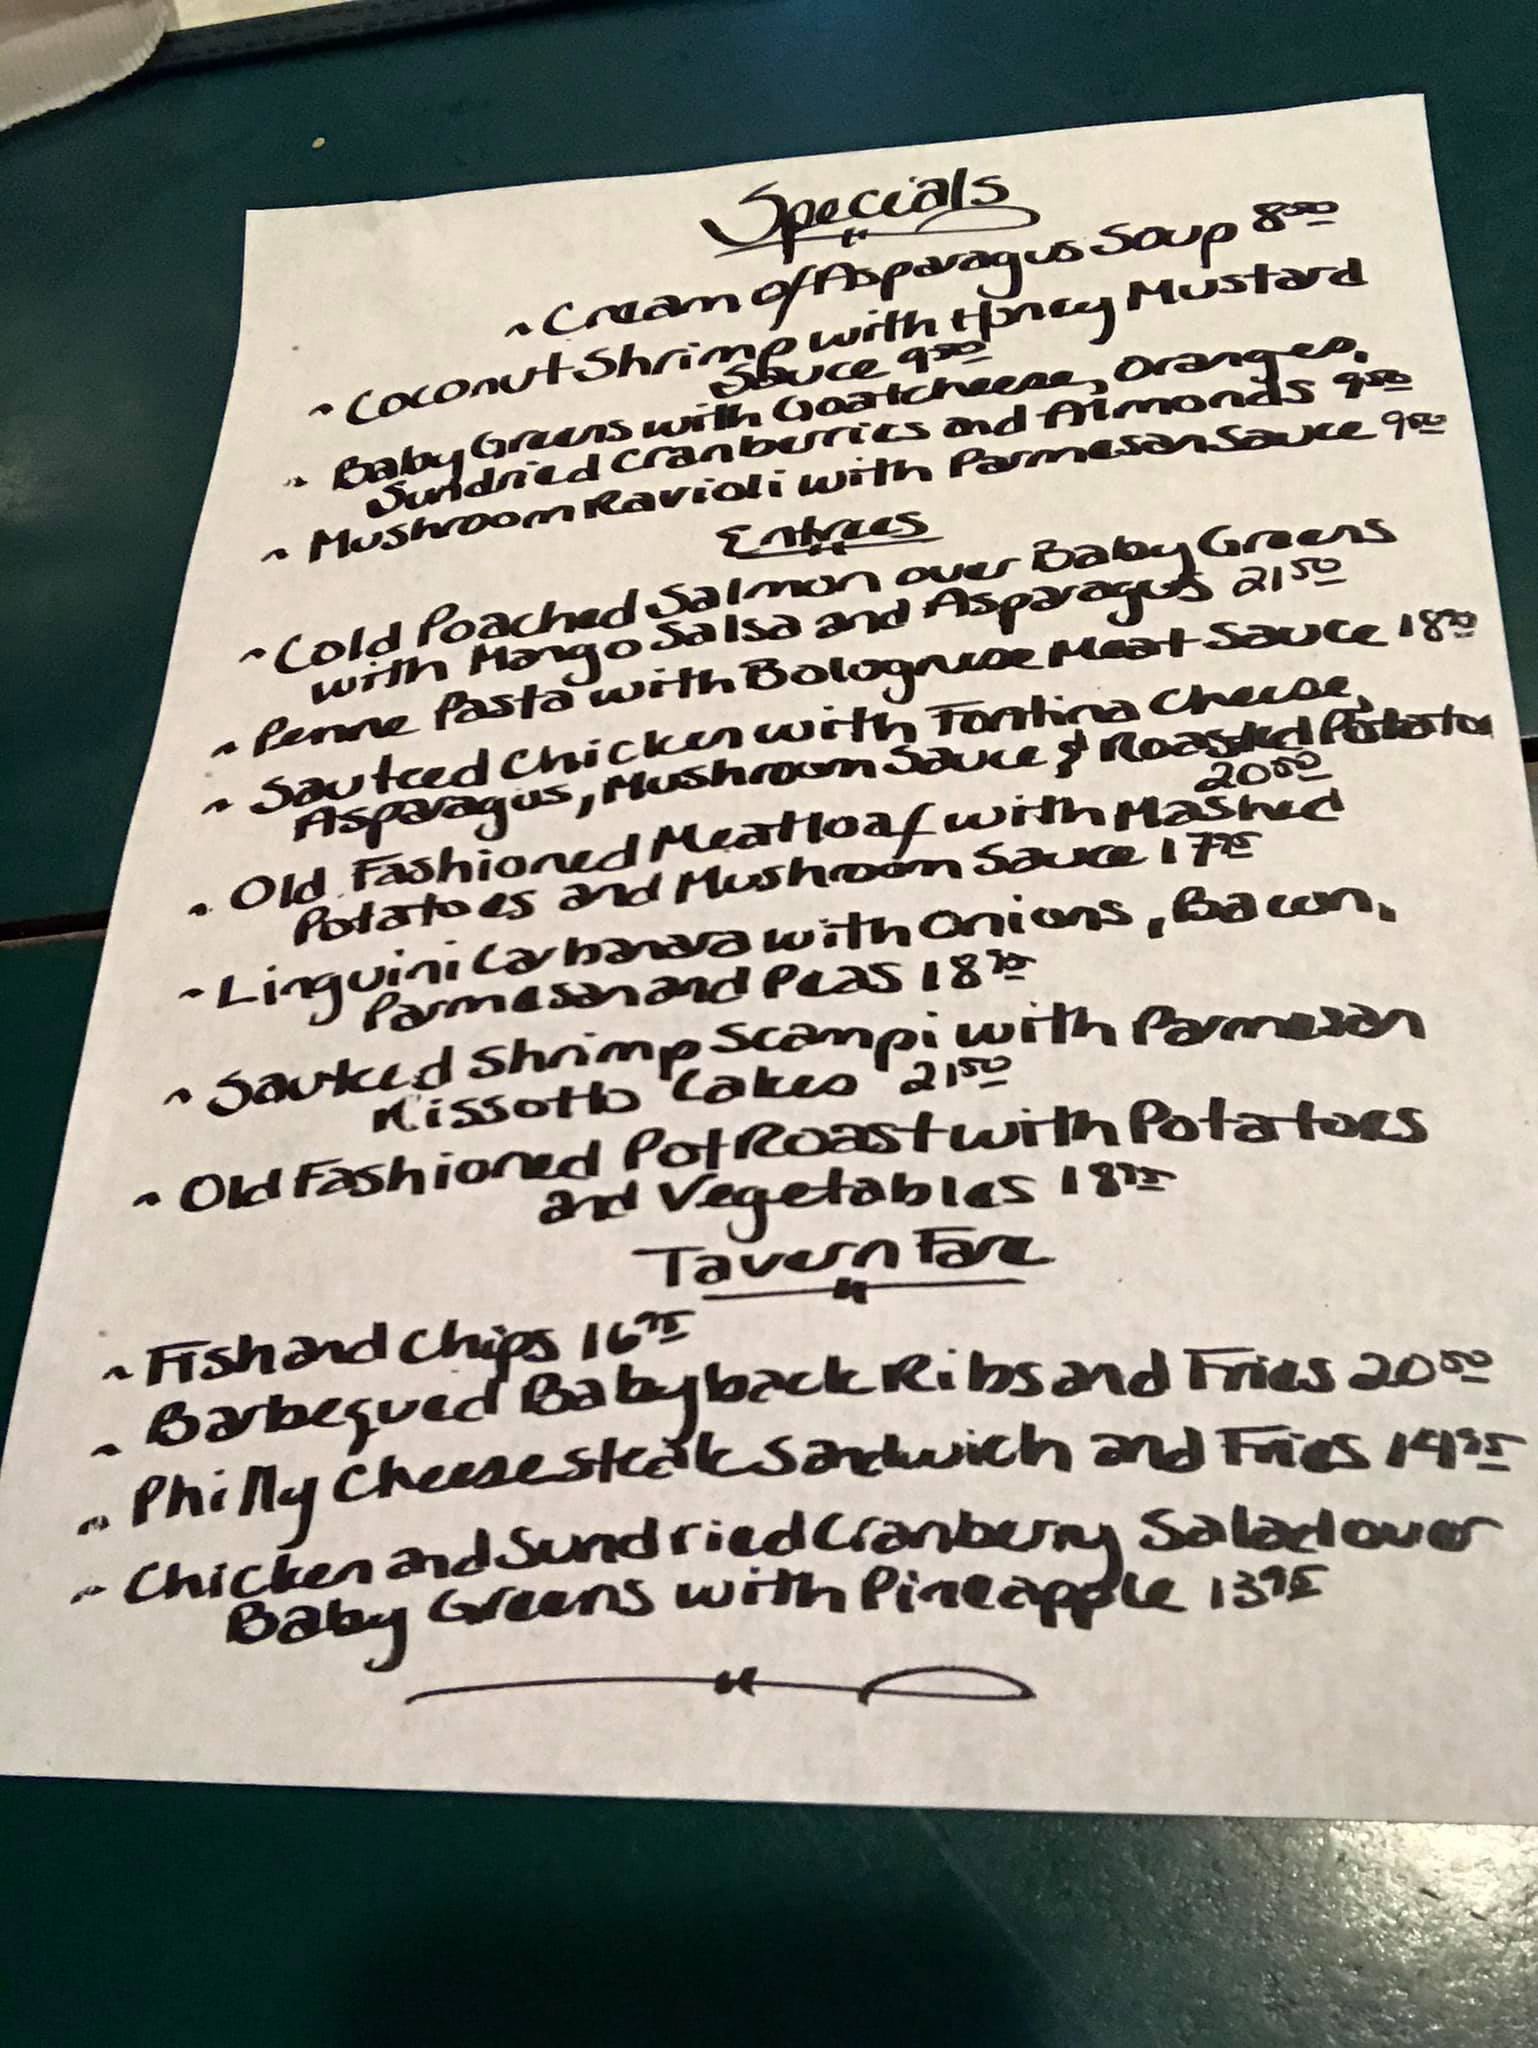 Specials
~ Cream of Asparagus Soup 8.50
~ Coconut Shrimp with Honey Mustard
Sauce 9.50
~ Baby Greens with Goatcheese, Oranges,
Sundried Cranberries and Almonds 9.50
~ Mushroom Ravioli with Parmesan Sauce 9.50
Entrees
~ Cold Poached Salmon over Baby Greens
with Mango Salsa and Asparagus 21.50
~ Penne Pasta with Bolognese Meat Sauce
~ Sauteed Chicken with Fontina Cheese,
Asparagus, Mushroom Sauce & Roasted Potatoe
20.50
~ Old Fashioned Meatloaf with Mashed
Potatoes and Mushroom Sauce 17.95
~ Linguini Carbanara with Onions, Bacon,
Parmesan and Peas
~ Sauteed Shrimp Scampi with Parmesan
Rissotto Cakes 21.50
~ Old Fashioned Pot Roast with Potatoes
and Vegetables 18.95
Tavern Fare
~ Fish and Chips 16.95
~ Barbequed Babyback Ribs and Fries 20.50
~ Philly Cheesesteak Sandwich and Fries 14.95
~ Chicken and Sundried Cranberry Salad over
Baby Greens with Pineapple 13.95